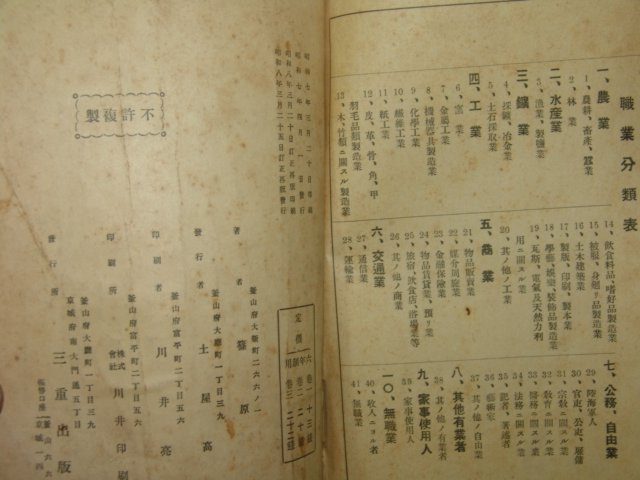 職業分類表
一、農業
1、農耕、畜産、蠶業
2、林業
二、水産業
3、漁業、製鹽業
三、鑛業
4、採鑛、冶金業
5、土石採取業
四、工業
6、窯業
7、金屬工業
8、機械器具製造業
9、化學工業
10、纖維工業
11、紙工業
12、皮、革、骨、角、甲
羽毛品類製造業
13、木、竹類ニ關スル製造業
14、飲食料品・嗜好品製造業
15、被服、身廻リ品製造業
16、土木建築業
17、製版、印刷、製本業
18、學藝、娯樂、装飾品製造業
19、瓦斯、電氣及天然力利
用ニ關スル業
20、其ノ他ノ工業
五、商業
21、物品販賣業
22、媒介周旋業
23、金融保險業
24、物品賃貸業、預リ業
25、旅宿、飲食店、浴場業等
26、其ノ他ノ商業
六、交通業
27、通信業
28、運輸業
七、公務、自由業
29、陸海軍人
30、官吏、公吏、雇傭
31、宗教ニ關スル業
32、教育ニ關スル業
33、醫務ニ關スル業
34、法務ニ關スル業
35、記者、著述者
36、藝術家
37、其ノ他ノ自由業
八、其他有業者
38、其ノ他ノ有業者
九、家事使用人
39、家事使用人
一〇、無職業
40、收入ニヨル者
41、無職業
昭和七年三月二十日印刷
昭和七年四月一日發行
昭和八年三月二十日訂正再版印刷
昭和八年三月二十五日訂正再版發行
不許複製
定價
六年制用
卷一 十三錢
卷二 二十錢
卷三 二十二錢
釜山府大新町二六六ノ一
著者 篠原
釜山府大廳町一丁目三九
發行者 土屋高
釜山府富平町二丁目五六
印刷者 川井亮
釜山府富平町二丁目五六
印刷所 株式會社 川井印刷
釜山府大廳町一丁目三九
京城府南大門通五丁目
發行所 三重出版